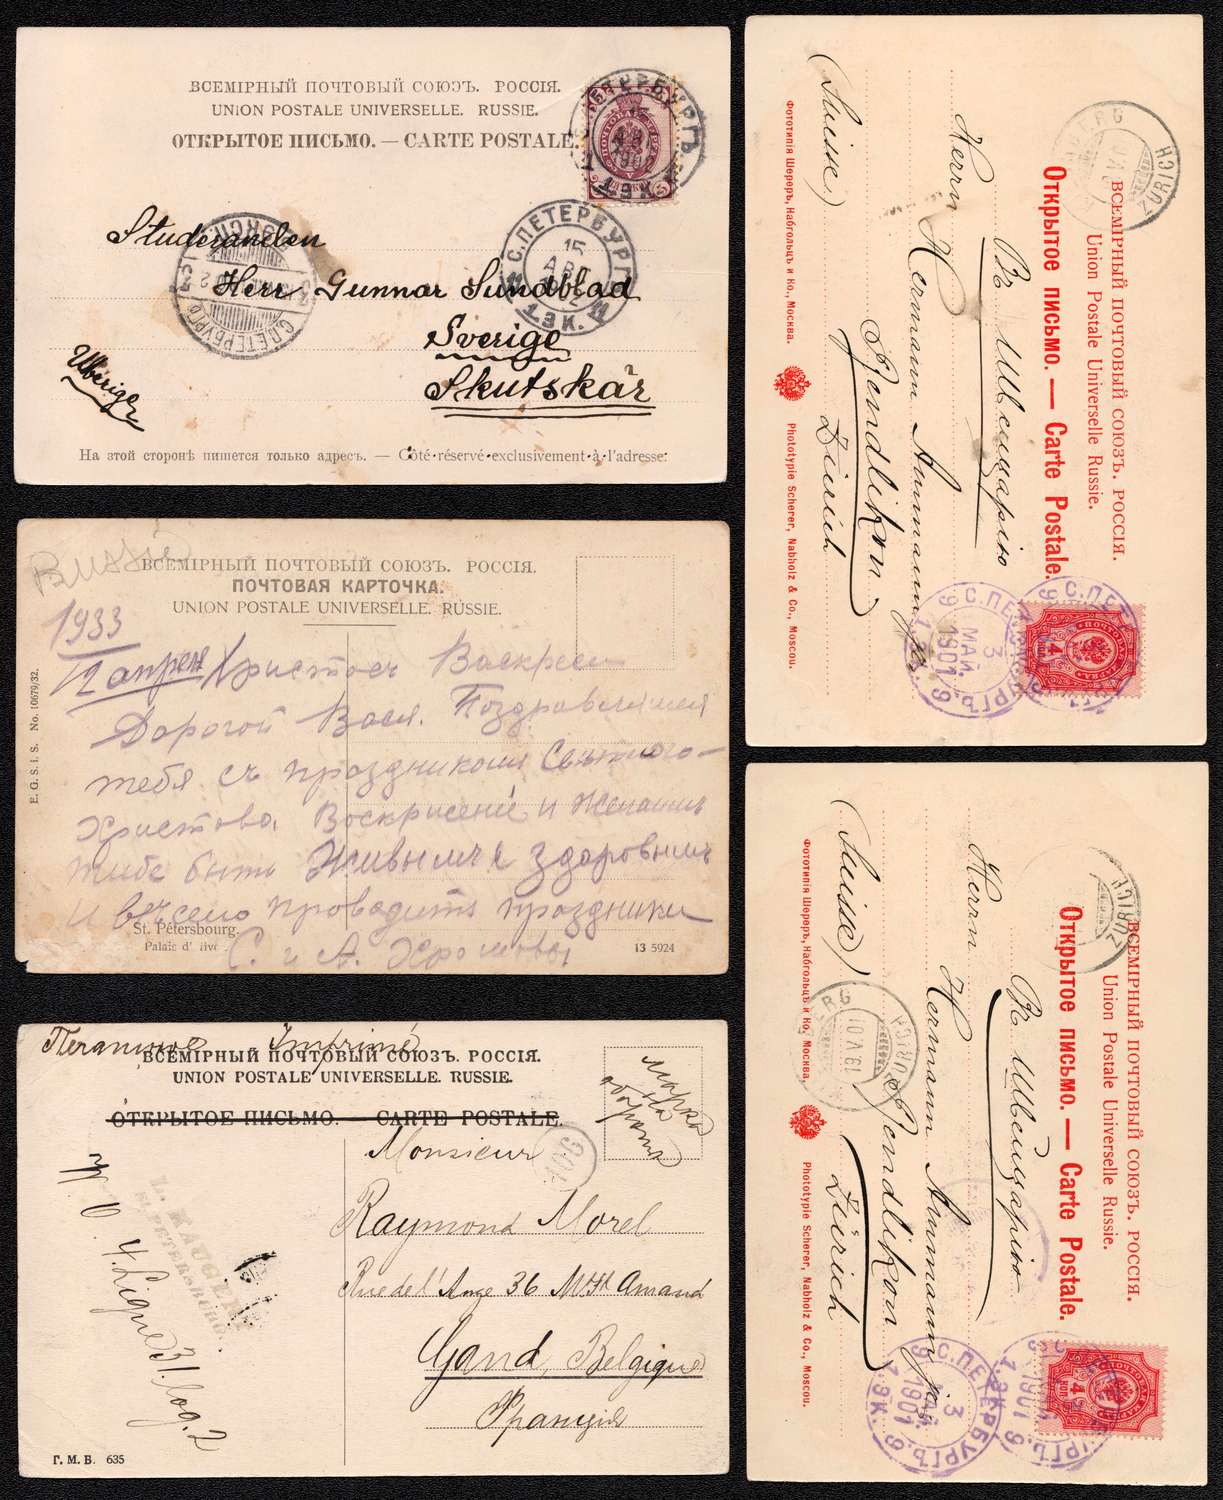 ВСЕМІРНЫЙ ПОЧТОВЫЙ СОЮЗЪ. РОССІЯ.
UNION POSTALE UNIVERSELLE. RUSSIE.
ОТКРЫТОЕ ПИСЬМО. — CARTE POSTALE.
С. ПЕТЕРБУРГЪ
15
1902
7 ЭК.
С.ПЕТЕРБУРГЪ
Studeranden
Herr Gunnar Sundblad
Sverige
Skutskär
На этой сторонѣ пишется только адресъ. — Côté réservé exclusivement à l'adresse:
Russie
ВСЕМІРНЫЙ ПОЧТОВЫЙ СОЮЗЪ. РОССІЯ.
ПОЧТОВАЯ КАРТОЧКА.
UNION POSTALE UNIVERSELLE. RUSSIE.
1933
12 апреля Христосъ Воскресе
Дорогой Вася. Поздравляем
тебя съ праздником Святого
Христова, Воскрисеніе и желаем
тибе быть Живым и здоровым
и весело проводить праздники
С. и А.
E. G. S. I. S. No. 10679/32.
St. Pétersbourg.
Palais d'
13 5924
Imprimé
ВСЕМІРНЫЙ ПОЧТОВЫЙ СОЮЗЪ. РОССІЯ.
UNION POSTALE UNIVERSELLE. RUSSIE.
ОТКРЫТОЕ ПИСЬМО. — CARTE POSTALE.
марка
на
обороте
Monsieur
Raymond Morel
Rue de l'Ange 36 Mt St Amand
Gand, Belgique
Франція
L. KAUGER
St. PETERSBURG.
В. О. 4 Ligne 31 log. 2
Г. М. Б. 635
ВСЕМІРНЫЙ ПОЧТОВЫЙ СОЮЗЪ. РОССІЯ.
Union Postale Universelle Russie.
Открытое письмо. — Carte Postale.
ZÜRICH
Въ Швейцарію
Herrn
Hermann Ammann jg.
Bendlikon
Zürich
(Suisse)
С.ПЕТЕРБУРГЪ. 9
3
МАЙ.
1901
4
Фототипія Шереръ, Набгольцъ и Ко., Москва.
Phototypie Scherer, Nabholz & Co., Moscou.
ВСЕМІРНЫЙ ПОЧТОВЫЙ СОЮЗЪ. РОССІЯ.
Union Postale Universelle Russie.
Открытое письмо. — Carte Postale.
ZÜRICH
Въ Швейцарію
Herrn
Hermann Ammann jg.
Bendlikon
Zürich
(Suisse)
ZÜRICH
С.ПЕТЕРБУРГЪ. 9
3
МАЙ.
1901
7. ЭК.
4
Фототипія Шереръ, Набгольцъ и Ко., Москва.
Phototypie Scherer, Nabholz & Co., Moscou.